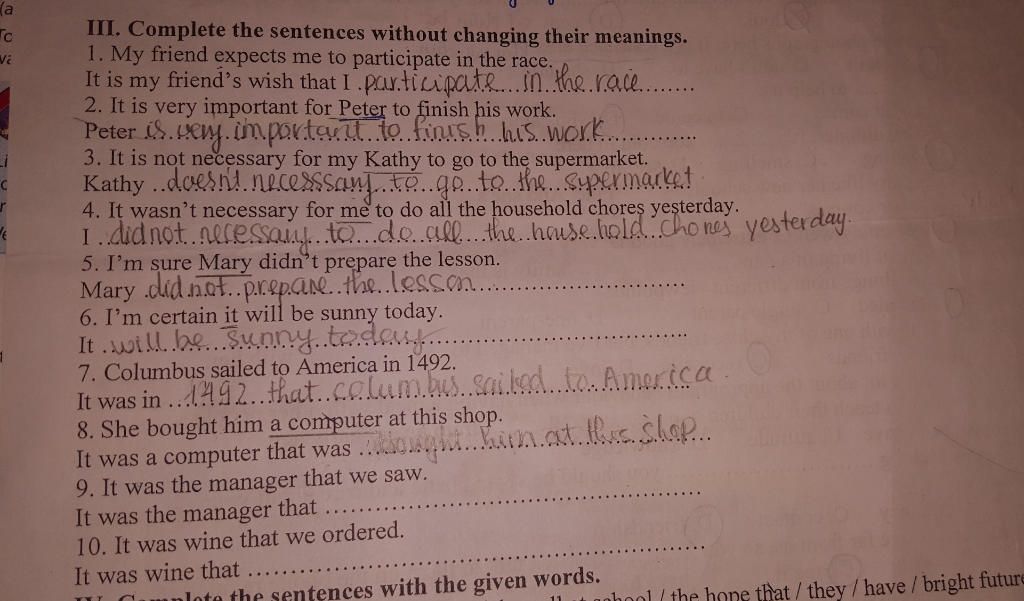 III. Complete the sentences without changing their meanings.
1. My friend expects me to participate in the race.
It is my friend's wish that I .participate...in..the.race........
2. It is very important for Peter to finish his work.
Peter is.very.important..to..finish.his.work..............
3. It is not necessary for my Kathy to go to the supermarket.
Kathy ..doesn't.necesssary..to..go..to..the..supermarket
4. It wasn't necessary for me to do all the household chores yesterday.
I ..did not..necessary...to...do..all...the..household..chores yesterday.
5. I'm sure Mary didn't prepare the lesson.
Mary .did.not..prepare..the..lesson..............................
6. I'm certain it will be sunny today.
It ..will.be..sunny.today......................................
7. Columbus sailed to America in 1492.
It was in ..1492..that..columbus.sailed..to..America
8. She bought him a computer at this shop.
It was a computer that was ..bought..him.at.this.shop...
9. It was the manager that we saw.
It was the manager that .......................................................
10. It was wine that we ordered.
It was wine that ...................................................................
sentences with the given words.
/ the hope that / they / have / bright future